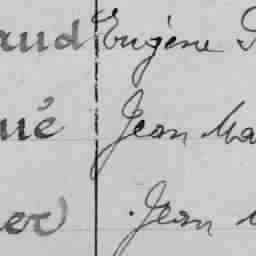 aud Eugène
ué Jean Ma
er Jean